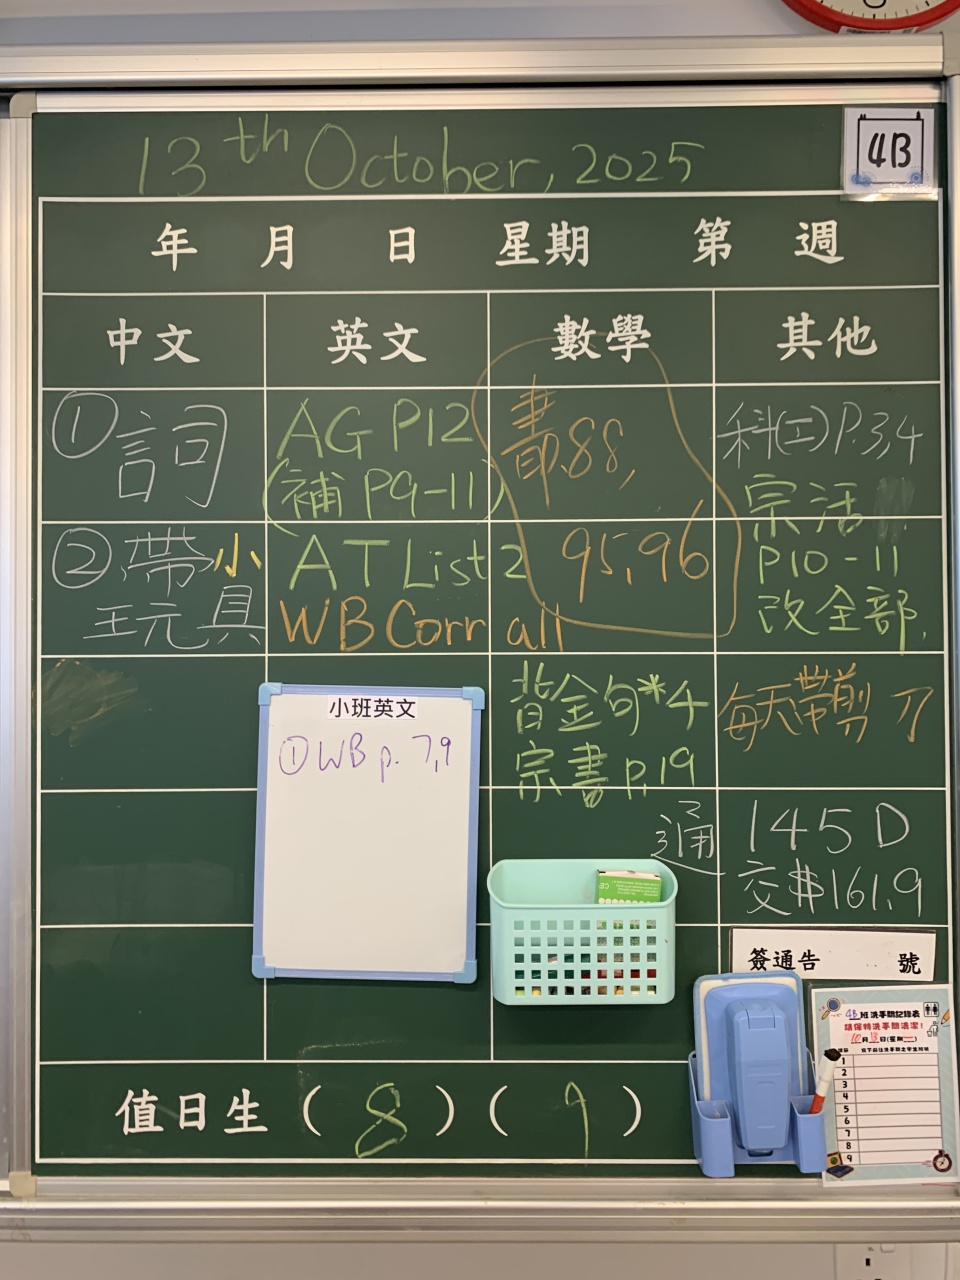 13th October, 2025
4B
年 月 日 星期 第 週
中文 英文 數學 其他
① 詞
② 帶小
王元具
AG P12
(補 P9-11)
AT List 2
WB Corr all
小班英文
① WB p. 7,9
書
88,
95,96
背金句*4
宗書 p.19
科(三)P.3,4
宗活
P10-11
改全部.
每天帶剪刀
通 145D
交$161.9
簽通告 號
4B班洗手間記錄表
請保持洗手間清潔!
10月13日(星期一)
1
2
3
4
5
6
7
8
9
值日生 ( 8 ) ( 9 )